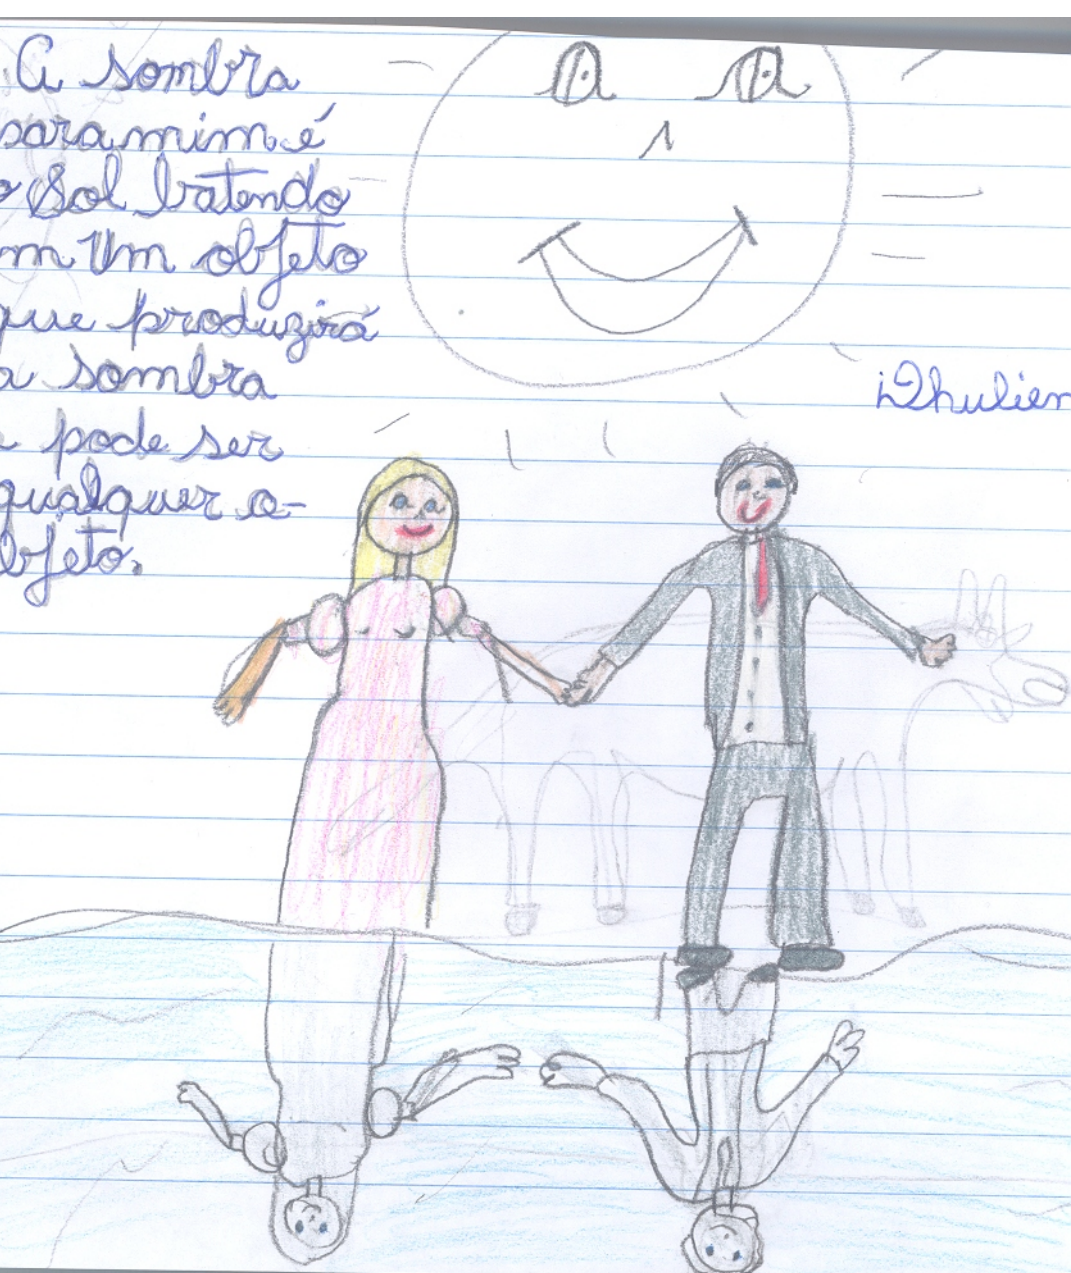 A sombra
para mim é
o Sol batendo
em Um objeto
que produzirá
a sombra
pode ser
qualquer o-
bjeto.
Dhulien